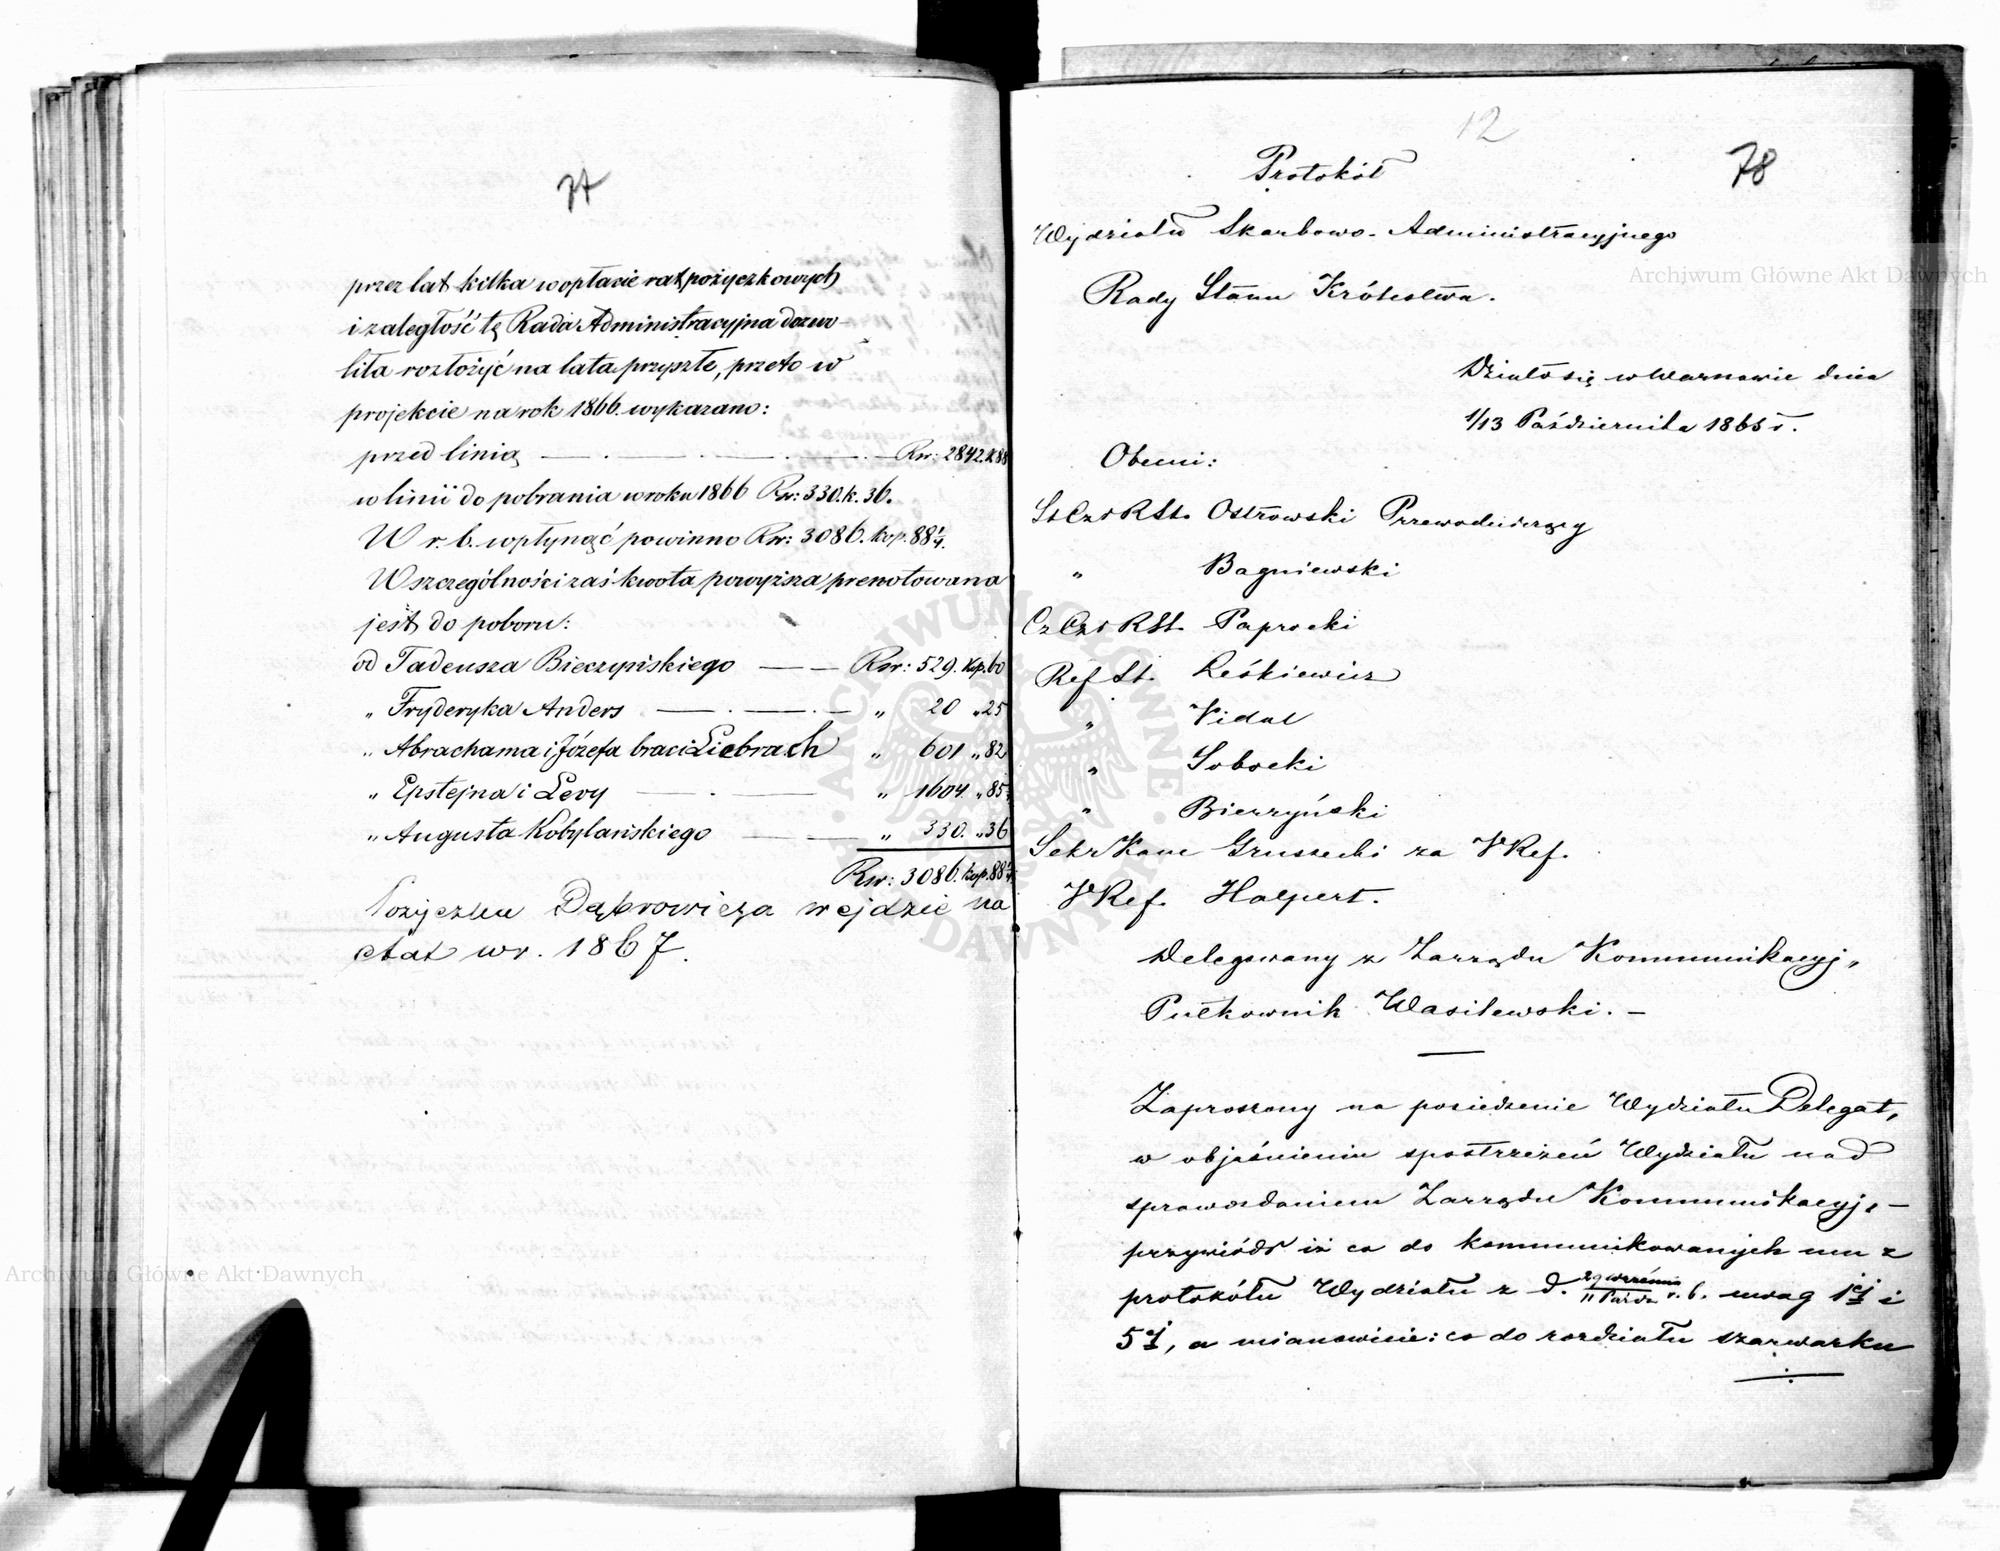 77
przez lat kilka w opłacie rat pożyczkowych
i zaległość tę Rada Administracyjna dozwo-
liła rozłożyć na lata przyszłe, przeto w
projekcie na rok 1866. wykazano:
przed linią — Rsr: 2842. k 88
w linii do pobrania w roku 1866 Rsr: 330. k. 36.
W r. b. wpłynąć powinno Rsr: 3086. kop. 88¼.
W szczególności zaś kwota powyższa prenotowana
jest do poboru:
od Tadeusza Bieczyńskiego — Rsr: 529. kop. 60
„ Fryderyka Anders — „ 20 „ 25
„ Abrachama i Józefa braci Liebrach „ 601 „ 82
„ Epstejna i Levy — „ 1604. „ 85
„ Augusta Kobylańskiego — „ 330. „ 36
Rsr: 3086. kop. 88¼
Pożyczka Dąbrowicza wejdzie na
etat w r. 1867.
12
78
Protokół
Wydziału Skarbowo-Administracyjnego
Rady Stanu Królestwa.
Działo się w Warszawie dnia
1/13 Października 1865 r.
Obecni:
St Czł R St. Ostrowski Przewodniczący
„ Bagniewski
Cz Czł R St. Paprocki
Ref St. Leśkiewicz
„ Vidal
„ Sobocki
„ Bierzyński
Sekr Kanc Gruszecki za V Ref.
V Ref. Halpert.
Delegowany z Zarządu Kommunikacyj„
Pułkownik Wasilewski. –
Zaproszony na posiedzenie Wydziału Delegat,
w objaśnieniu spostrzeżeń Wydziału nad
sprawozdaniem Zarządu Kommunikacyj, –
przywiódł iż co do kommunikowanych mu z
protokółu Wydziału z d. 29 września / 11 Paźdz r. b. uwag 1ej i
5ej, a mianowicie: co do rozdziału szarwarku
Archiwum Główne Akt Dawnych
Archiwum Główne Akt Dawnych
ARCHIWUM GŁÓWNE AKT DAWNYCH